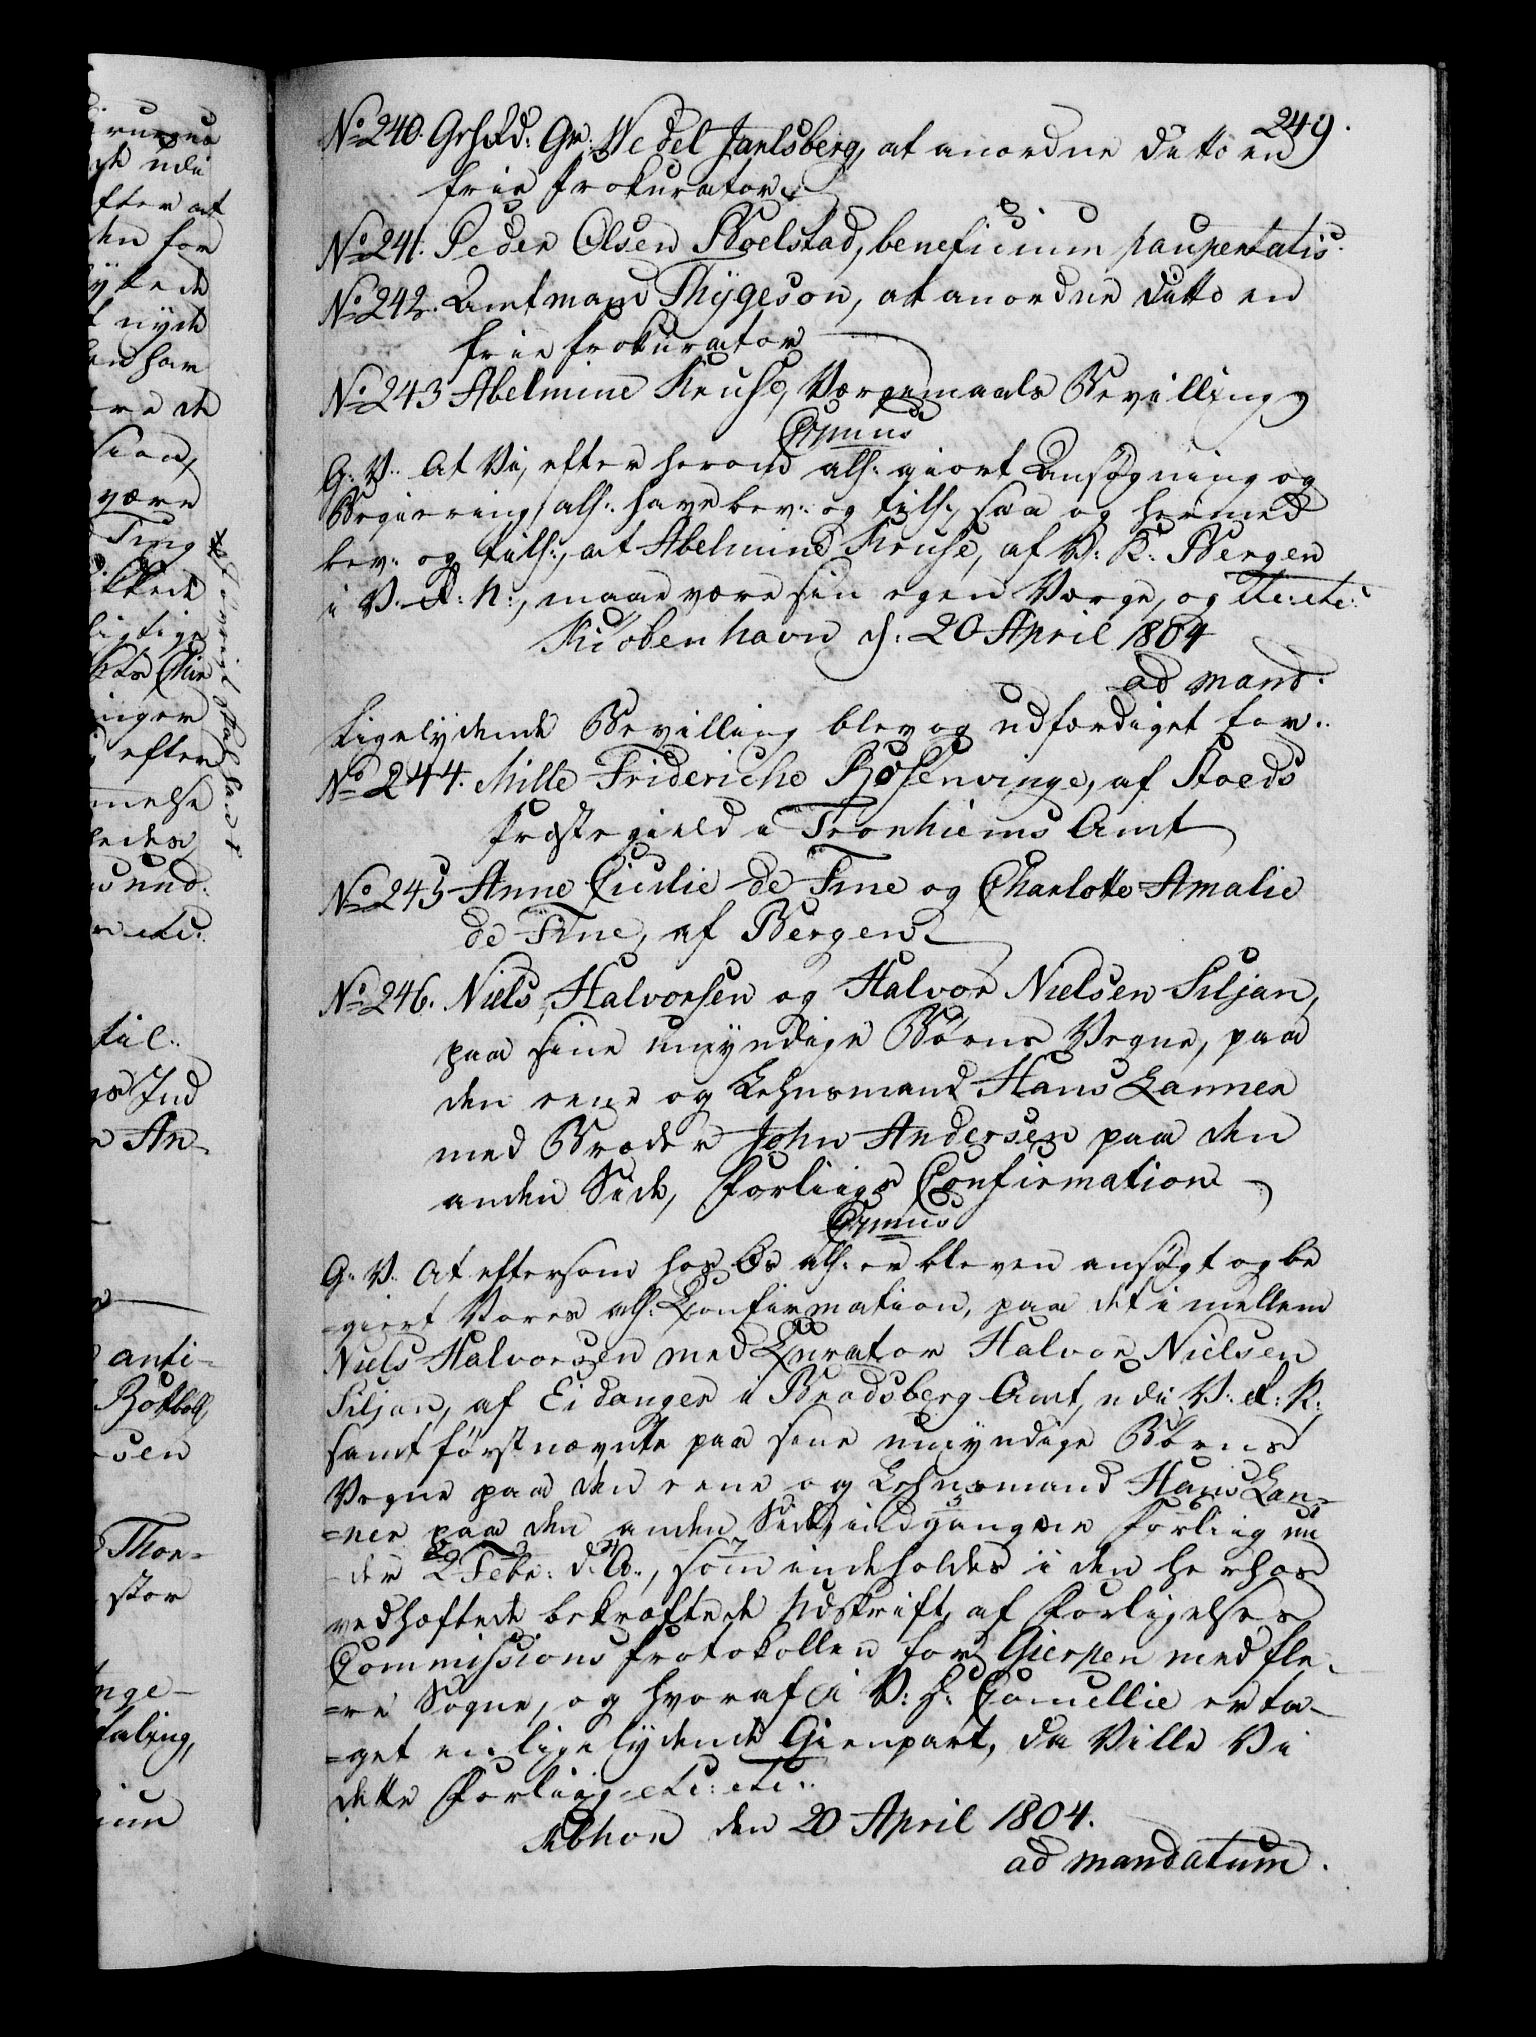 249.
No 240. Geh.Rd: Gr: Wedel Jarlsberg, at anordne ditto en
frie Prokurator.
No 241. Peder Olsen Skoelstad, beneficium paupertatis.
No 242. Amtmand Thygeson, at anordne ditto en
frie Prokurator
No 243 Abelmine Kruse, Værgemaals Bevilling
C7mus
G: V: At Vi, efter herom all: giort Ansøgning og
Begiering, all: have bev: og till:, saa og hermed
bev: og till:, at Abelmine Kruse, af V: K: Bergen
i V: R: N:, maae være sin egen Værge, og etc: etc:
Kiøbenhavn d: 20 April 1804
ad mand:
Ligelydende Bevilling blev og udfærdiget for:
No 244. Mille Frideriche Rosenvinge, af Stoeds
Præstegield i Tronhiems Amt
No 245 Anne Cicilie de Fine og Charlotte Amalie
de Fine, af Bergen
No 246. Niels Halvorsen og Halvor Nielsen Siljan,
paa sine umyndige Børns Vegne, paa
den eene og Lehnsmand Hans Lanner
med Broder John Andersen paa den
anden Side, Forliigs Confirmation
C7mus
G: V: At eftersom hos Os all: er bleven ansøgt og be
=giert Vores all: Confirmation, paa det imellem
Niels Halvorsen med Curator Halvor Nielsen
Siljan, af Eidanger i Bradsberg Amt, udi V: R: N:,
samt førstnævnte paa sine umyndige Børns
Vegne paa den eene og Lehnsmand Hans Lan=
=ner paa den anden Side, indgangne Forliig un
der 2 Febr: d: A:, som indeholdes i den herhos
vedhæftede bekræftede Udskrift af Forligelses
Commissions Protokollen for Gierpen med fle=
=re Sogne, og hvoraf i V: D: Cancellie er ta=
=get en ligelydende Gienpart, da Ville Vi
dette Forliig etc: etc:
Kbhvn den 20 April 1804.
ad mandatum.